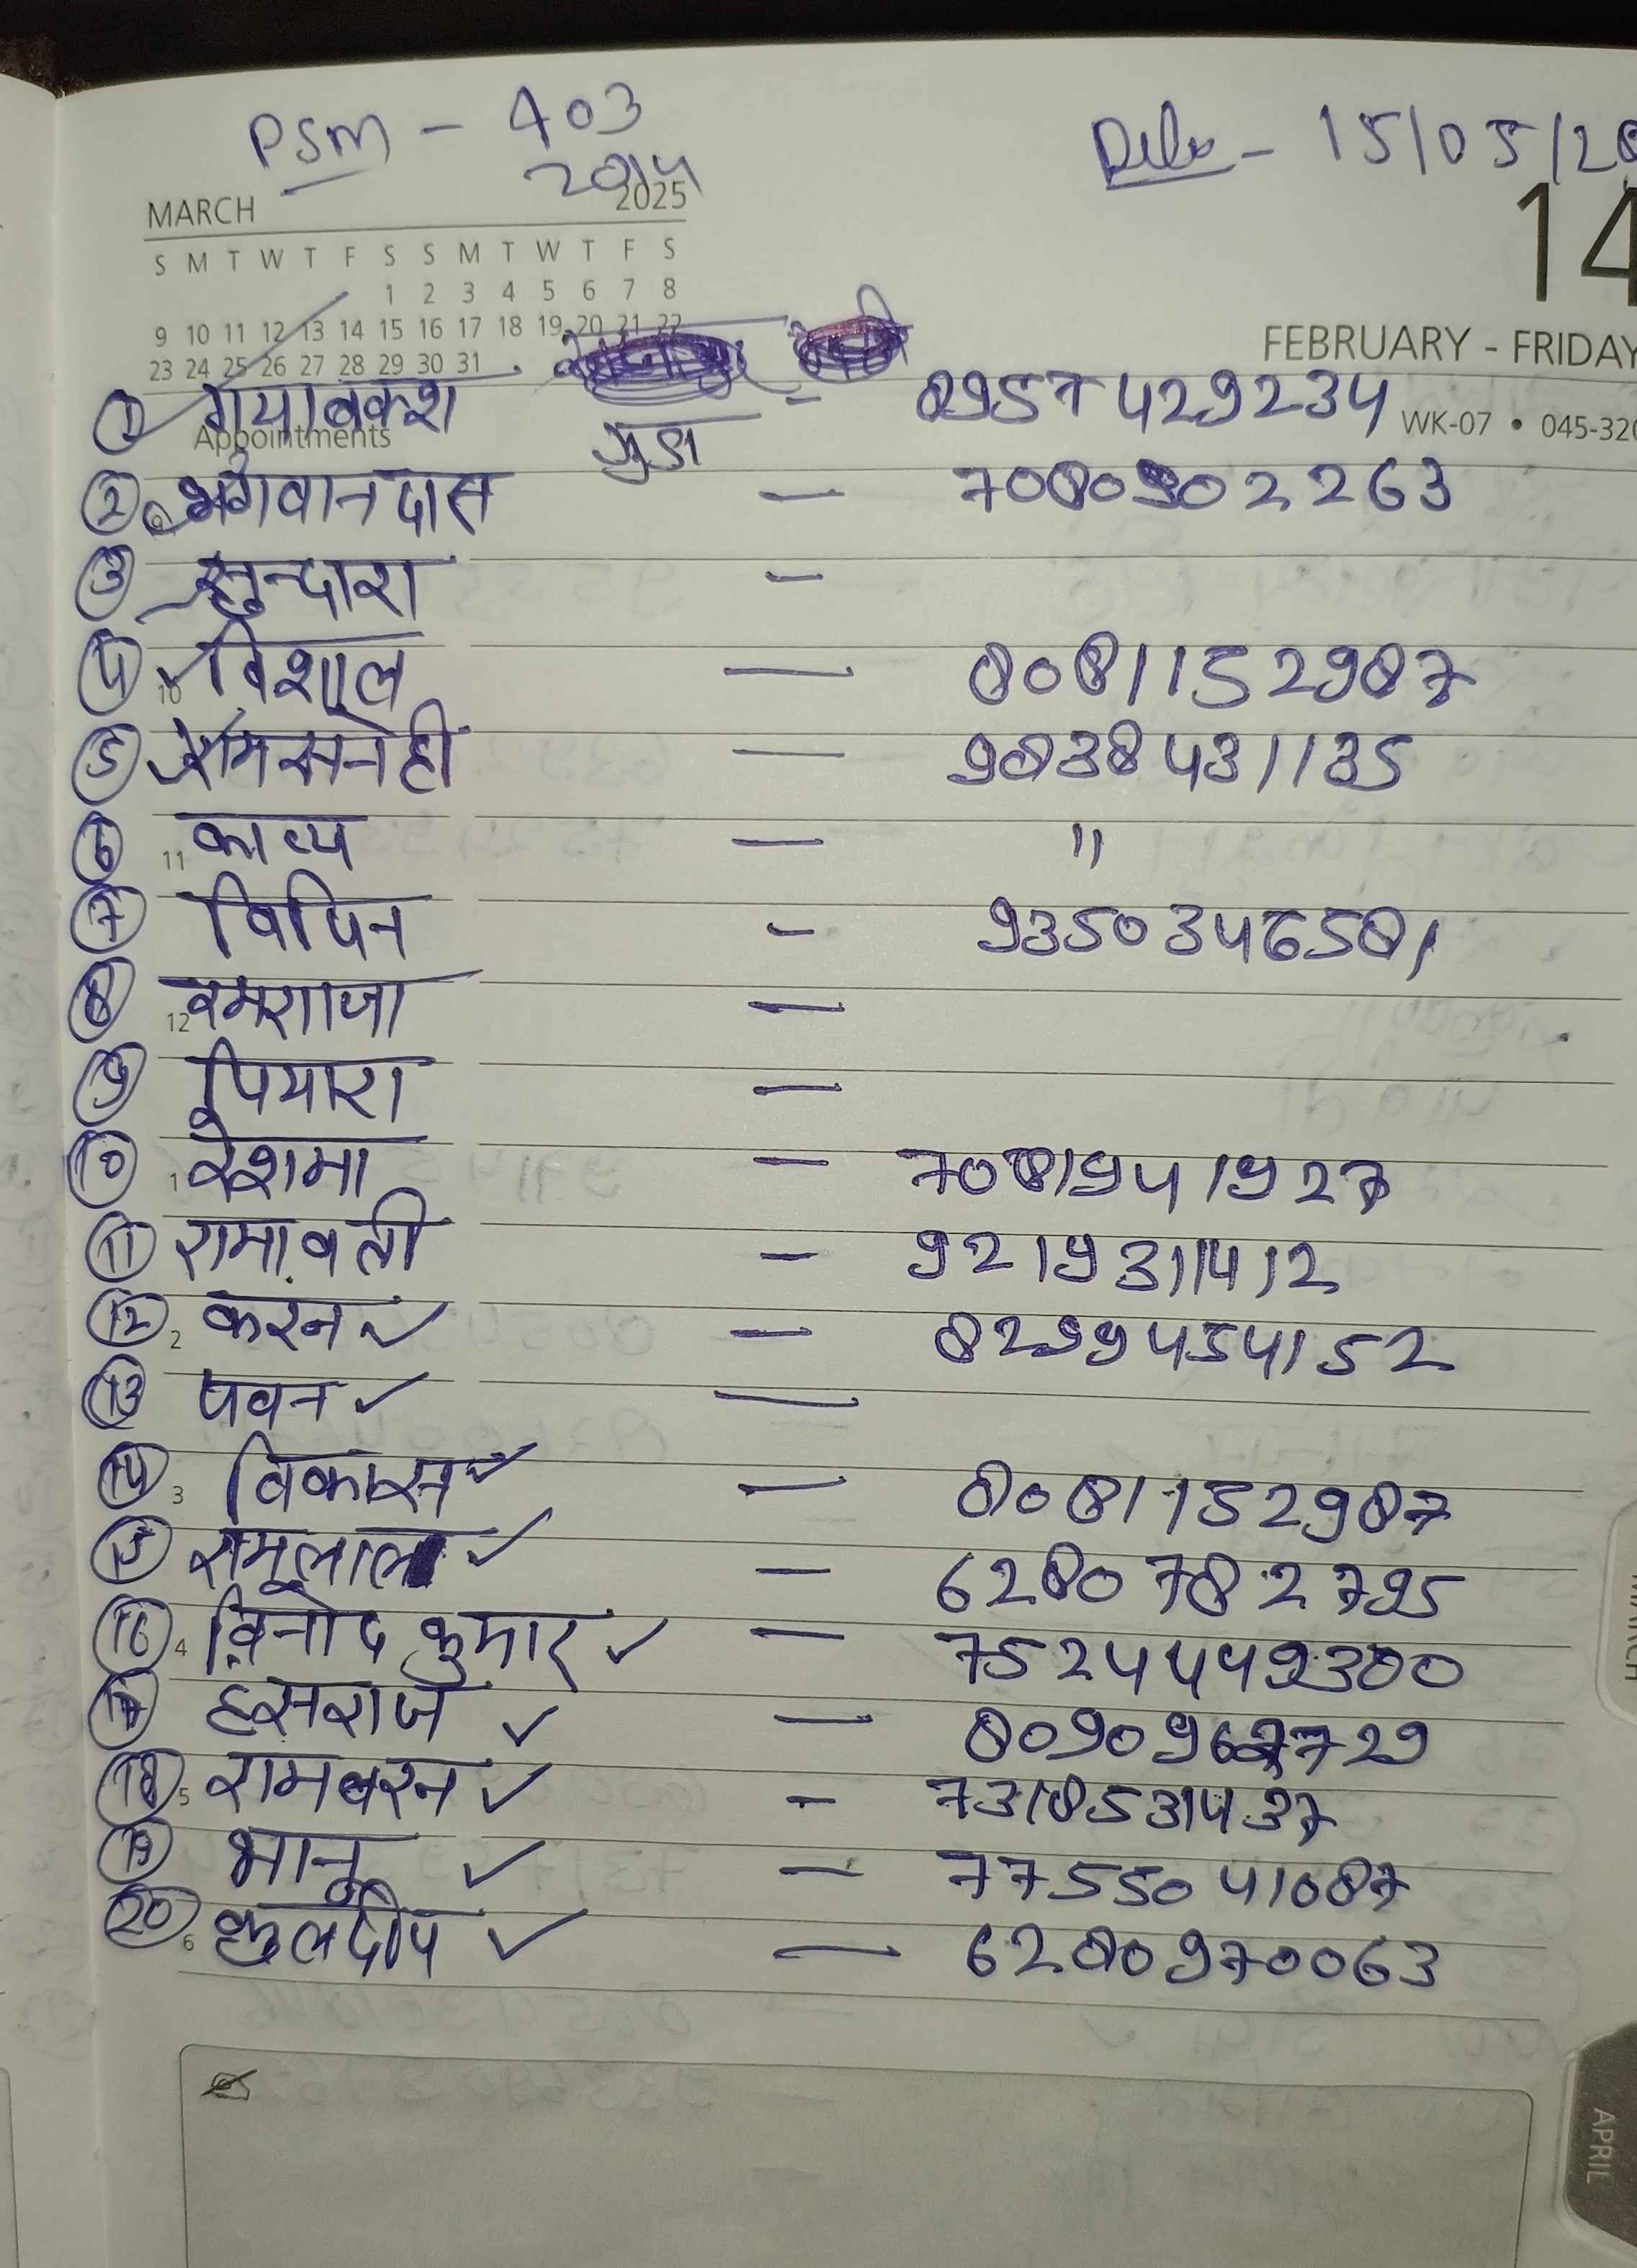 PSM - 403
2014
Date - 15/05/20
MARCH 2025
S M T W T F S S M T W T F S
1 2 3 4 5 6 7 8
9 10 11 12 13 14 15 16 17 18 19 20 21 22
23 24 25 26 27 28 29 30 31
14
FEBRUARY - FRIDAY
WK-07 • 045-320
Appointments
① गयाबकश - 8957429234
गुडा
② भगवानदास — 7080902263
③ सुन्दारा —
④ विशाल — 8081152987
10
⑤ रामसनेही — 9838431135
⑥ काव्य — "
11
⑦ विपिन - 9350346581
⑧ बमराजा —
12
⑨ पियारा —
⑩ रेशमा — 7081941927
1
⑪ रामावती — 9219311412
⑫ करन ✓ — 8299454152
2
⑬ पवन ✓ —
⑭ विकास ✓ — 8081152987
3
⑮ रामूलाल ✓ — 6280782795
⑯ विनोद कुमार ✓ — 7524449300
4
⑰ हसराज ✓ — 8090967729
⑱ रामबरन ✓ - 7318531437
5
⑲ भानू ✓ — 7755041087
⑳ कुलदीप ✓ — 6280970063
6
MARCH
APRIL